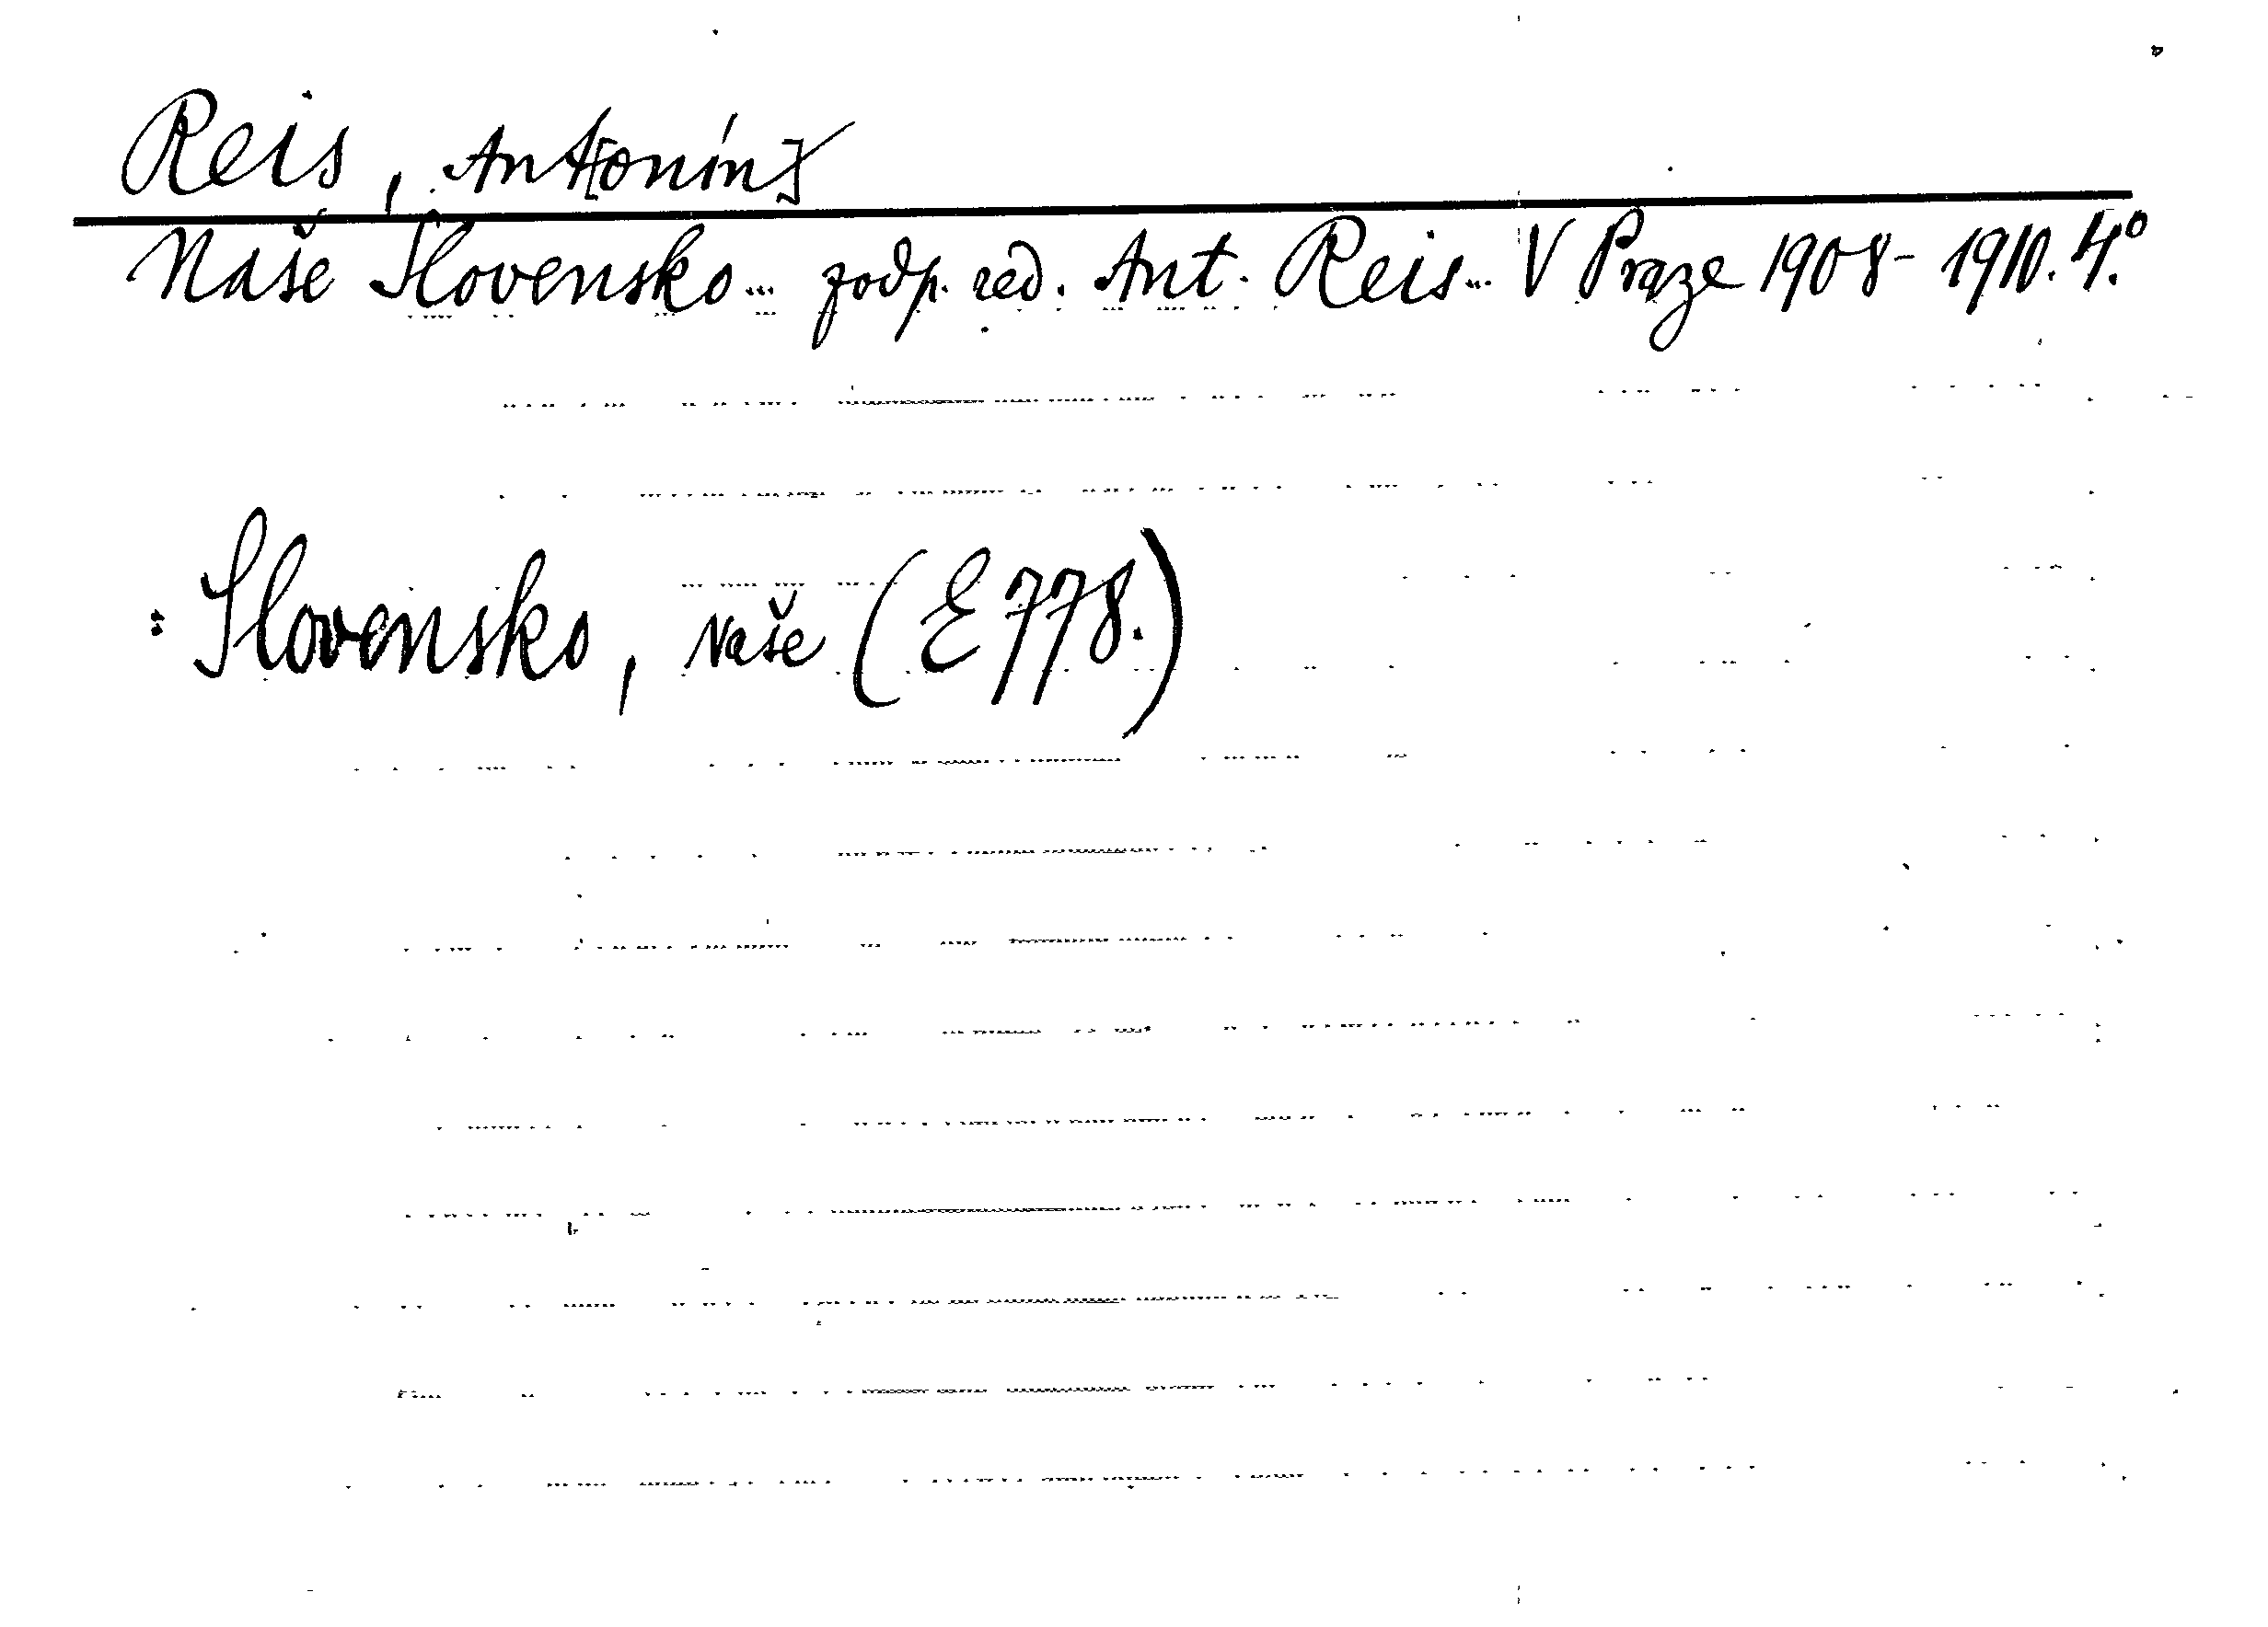 Reis, Ant[onín]
Naše Slovensko... zodp. red. Ant. Reis... V Praze 1908-1910. 4.°
: Slovensko, Naše (E 778.)